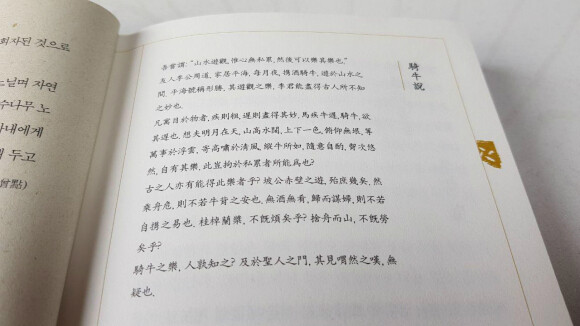 회자된 것으로
느닐며 자연
수나무 노
에게
두고
曾點)
騎牛說
吾嘗謂: "山水遊觀, 惟心無私累, 然後可以樂其樂也."
友人李公周道, 家居平海, 每月夜, 携酒騎牛, 遊於山水之
間. 平海號稱形勝, 其遊觀之樂, 李君能盡得古人所不知
之妙也.
凡寓目於物者, 疾則粗, 遲則盡得其妙. 馬疾牛遲, 騎牛, 欲
其遲也. 想夫明月在天, 山高水闊, 上下一色, 俯仰無垠, 等
萬事於浮雲, 寄高嘯於淸風, 縱牛所如, 隨意自酌, 胷次悠
然, 自有其樂, 此豈拘於私累者所能爲也?
古之人亦有能得此樂者乎? 坡公赤壁之遊, 殆庶幾矣. 然
乘舟危, 則不若牛背之安也. 無酒無肴, 歸而謀婦, 則不若
自携之易也. 桂棹蘭槳, 不旣煩矣乎? 捨舟而山, 不旣勞
矣乎?
騎牛之樂, 人孰知之? 及於聖人之門, 其見喟然之嘆, 無
疑也.